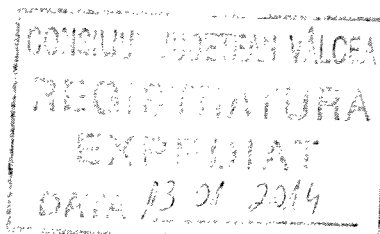 CONSILIUL JUDETEAN VALCEA
REGISTRATURA
EXPEDIAT
DATA 13 01 2014